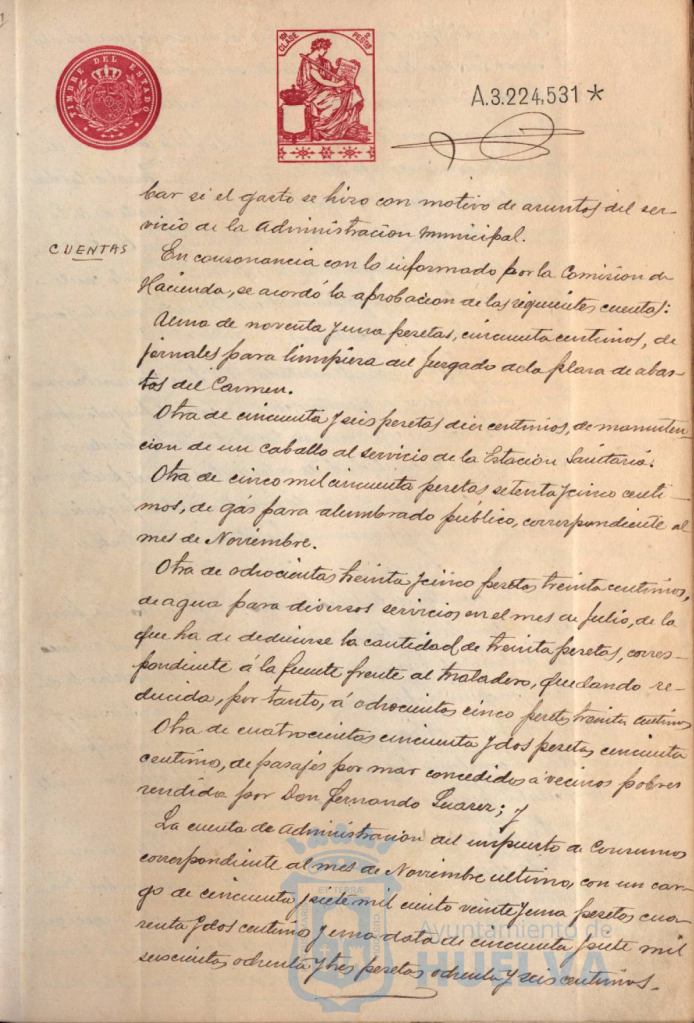 TIMBRE DEL ESTADO
10ª CLASE 2 PESETAS
A.3.224,531 *
bar si el gasto se hizo con motivo de asuntos del ser-
vicio de la Administracion municipal.
CUENTAS
En consonancia con lo informado por la Comision de
Hacienda, se acordó la aprobacion de las siguientes cuentas:
Una de noventa y una pesetas, cincuenta centimos, de
jornales para limpieza del Juzgado de la plaza de abas-
tos del Carmen.
Otra de cincuenta y seis pesetas diez centimos, de manuten-
cion de un caballo al servicio de la Estacion Sanitaria.
Otra de cinco mil cincuenta pesetas setenta y cinco centi-
mos, de gas para alumbrado público, correspondiente al
mes de Noviembre.
Otra de ochocientas treinta y cinco pesetas treinta centimos,
de agua para diversos servicios en el mes de Julio, de la
que ha de deducirse la cantidad de treinta pesetas, corres-
pondiente á la fuente frente al Matadero, quedando re-
ducida, por tanto, á ochocientas cinco pesetas treinta centimos
Otra de cuatrocientas cincuenta y dos pesetas cincuenta
centimos, de pasajes por mar concedidos á vecinos pobres
rendida por Don Fernando Suarez; y
La cuenta de Administracion del impuesto de Consumos
correspondiente al mes de Noviembre ultimo, con un car-
go de cincuenta y siete mil ciento veinte y una pesetas cua-
renta y dos centimos y una data de cincuenta y siete mil
seiscientas ochenta y tres pesetas ochenta y seis centimos.
Ayuntamiento de
HUELVA